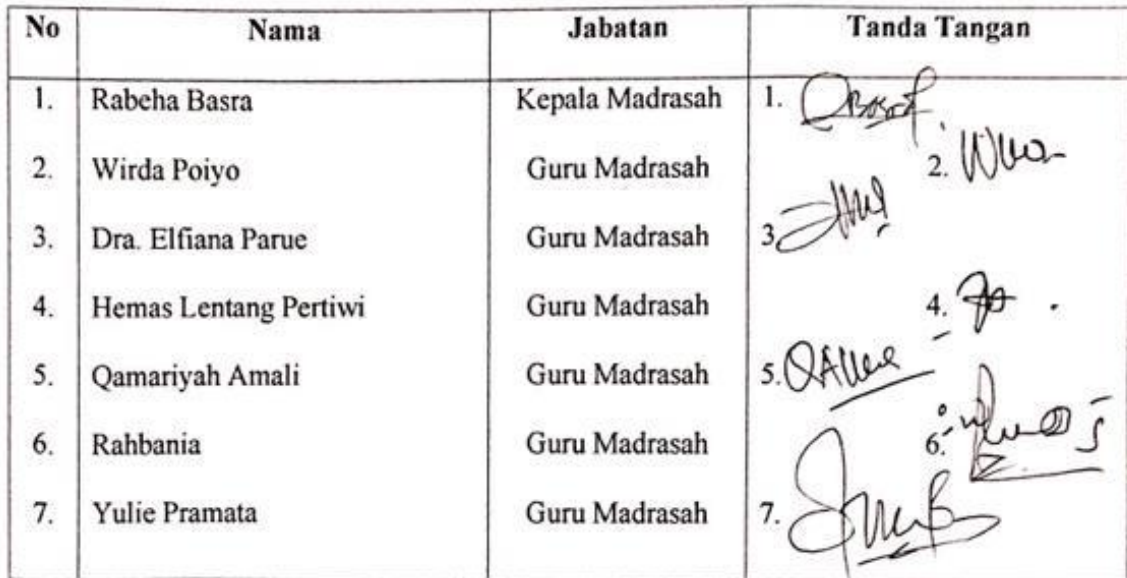 No Nama Jabatan Tanda Tangan
1. Rabeha Basra Kepala Madrasah 1.
2. Wirda Poiyo Guru Madrasah 2.
3. Dra. Elfiana Parue Guru Madrasah 3
4. Hemas Lentang Pertiwi Guru Madrasah 4.
5. Qamariyah Amali Guru Madrasah 5.
6. Rahbania Guru Madrasah 6.
7. Yulie Pramata Guru Madrasah 7.